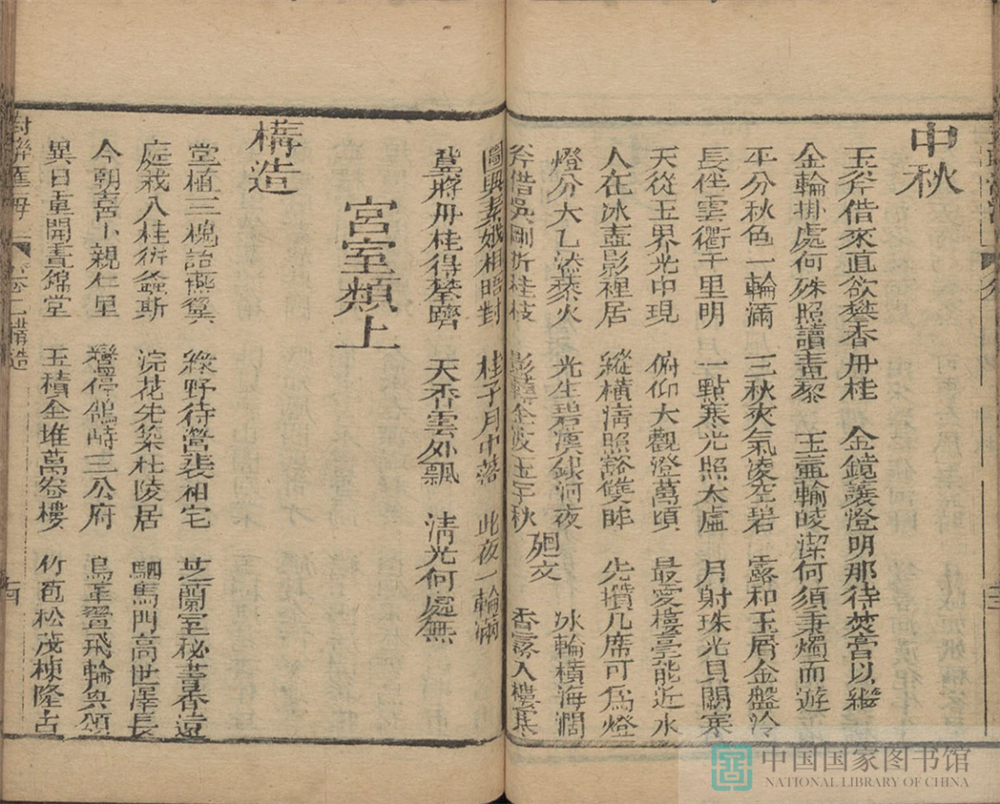 中秋
玉斧借來直欲攀香丹桂 金鏡護燈明那待焚膏以繼
金輪掛處何殊照讀青藜 玉壷輪皎潔何須秉燭而遊
平分秋色一輪滿 三秋爽氣凌空碧 露和玉屑金盤冷
長伴雲衢千里明 一點寒光照太虛 月射珠光貝闕寒
天從玉界光中現 俯仰大觀澄萬頃 最愛樓臺能近水
人在冰壺影裡居 縱橫清照豁雙眸 先攢几席可爲燈
燈分太乙添藜火 光生碧漢銀河夜 冰輪橫海濶
斧借吳剛折桂枝 影 金波玉宇秋 廻文 香霧入樓
圖興素娥相晤對 桂子月中落 此夜一輪滿
冀將丹桂得攀躋 天香雲外飄 清光何處無
宮室類上
構造
堂植三槐詒燕翼 綠野待營裴相宅 芝蘭室秘書香遠
庭栽八桂衍螽斯 浣花先築杜陵居 駟馬門高世澤長
今朝喜卜親仁里 鸞停鵠峙三公府 鳥革翬飛輪奐頌
異日重開晝錦堂 玉積金堆萬卷樓 竹苞松茂棟隆占
對聯匯海 卷七構造
中国国家图书馆
NATIONAL LIBRARY OF CHINA